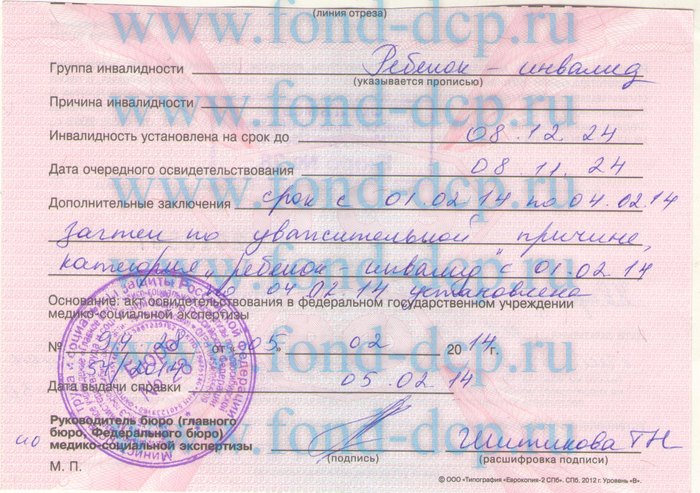 www.fond-dcp.ru
(линия отреза)
Группа инвалидности Ребенок - инвалид
(указывается прописью)
Причина инвалидности
www.fond-dcp.ru
Инвалидность установлена на срок до 08.12.24
Дата очередного освидетельствования 08.11.24
www.fond-dcp.ru
Дополнительные заключения срок с 01.02.14 по 04.02.14
зачтен по уважительной причине,
www.fond-dcp.ru
категория "ребенок - инвалид" с 01.02.14
по 04.02.14 установлена
Основание: акт освидетельствования в федеральном государственном учреждении
медико-социальной экспертизы
№ 94.28 от «05» 02 2014 г.
www.fond-dcp.ru
Дата выдачи справки 05.02.14
Руководитель бюро (главного
бюро, Федерального бюро)
ио медико-социальной экспертизы Шитикова ТН
www.fond-dcp.ru
(подпись) (расшифровка подписи)
М. П.
© ООО «Типография «Еврокопия-2 СПб». СПб. 2012 г. Уровень «В».